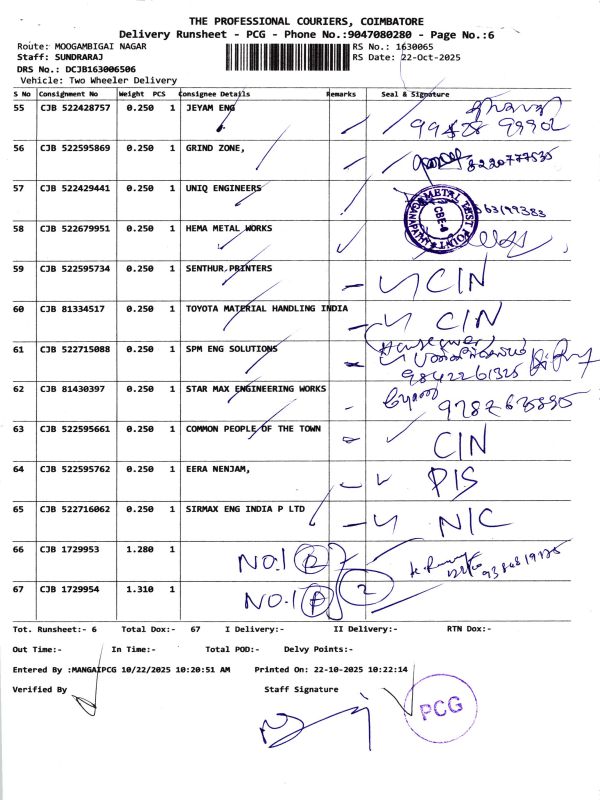 THE PROFESSIONAL COURIERS, COIMBATORE
Delivery Runsheet - PCG - Phone No.:9047080280 - Page No.:6
Route: MOOGAMBIGAI NAGAR RS No.: 1630065
Staff: SUNDRARAJ RS Date: 22-Oct-2025
DRS No.: DCJB163006506
Vehicle: Two Wheeler Delivery
S No Consignment No Weight PCS Consignee Details Remarks Seal & Signature
55 CJB 522428757 0.250 1 JEYAM ENG
56 CJB 522595869 0.250 1 GRIND ZONE, 8220777535
57 CJB 522429441 0.250 1 UNIQ ENGINEERS
METAL TEST POINT
GANAPATHY
CBE-6
58 CJB 522679951 0.250 1 HEMA METAL WORKS
59 CJB 522595734 0.250 1 SENTHUR,PRINTERS C/N
60 CJB 81334517 0.250 1 TOYOTA MATERIAL HANDLING INDIA C/N
61 CJB 522715088 0.250 1 SPM ENG SOLUTIONS
9842261325
62 CJB 81430397 0.250 1 STAR MAX ENGINEERING WORKS
63 CJB 522595661 0.250 1 COMMON PEOPLE OF THE TOWN C/N
64 CJB 522595762 0.250 1 EERA NENJAM, P/S
65 CJB 522716062 0.250 1 SIRMAX ENG INDIA P LTD N/C
66 CJB 1729953 1.280 1 NO.1 P
67 CJB 1729954 1.310 1 NO.1 P 2
Tot. Runsheet:- 6 Total Dox:- 67 I Delivery:- II Delivery:- RTN Dox:-
Out Time:- In Time:- Total POD:- Delvy Points:-
Entered By :MANGAIPCG 10/22/2025 10:20:51 AM Printed On: 22-10-2025 10:22:14
Verified By Staff Signature
PCG